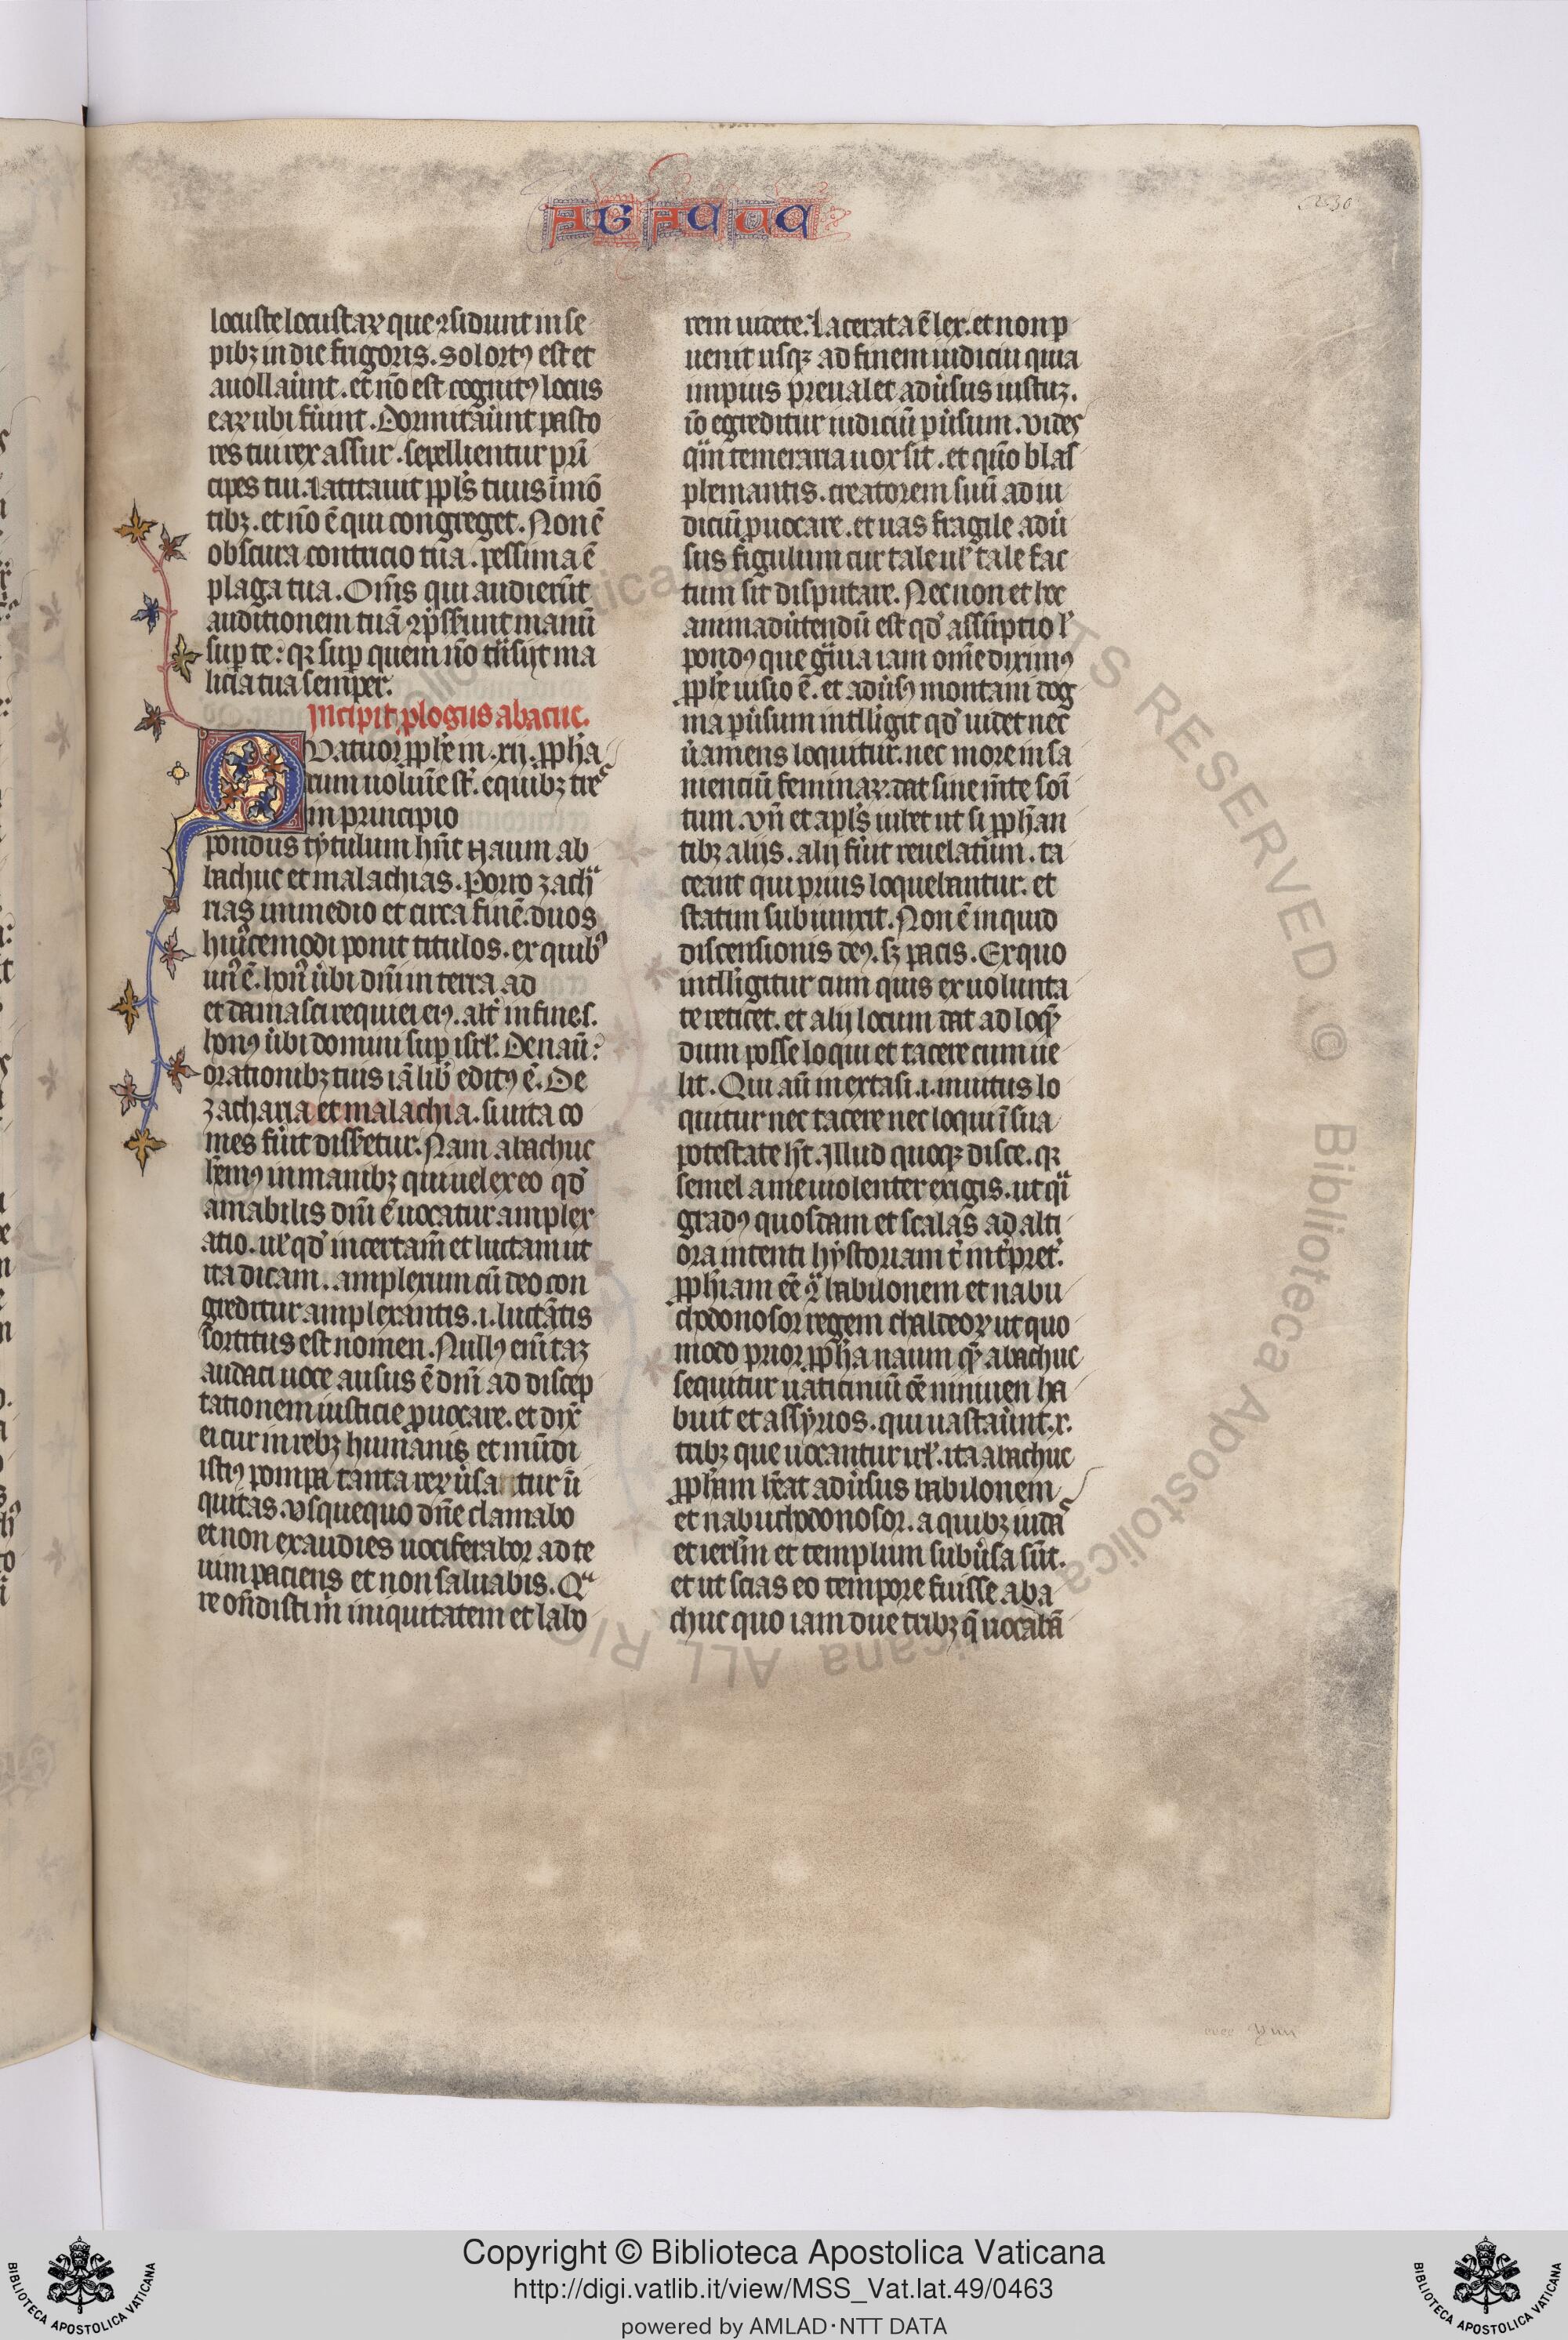 ABACUC
230
locuste locustaꝝ que ꝯsidunt in se
pibꝫ in die frigoris. Sol ortꝰ est et
auollau̇nt. et nō est cognitꝰ locus
eaꝝ ubi fu̇unt. Dormitau̇nt pasto
res tui rex assur. sepelientur pri̅
cipes tui. Latitauit ppl̅s tuus i̅ mō
tibꝫ. et nō ē qui congreget. Non ē
obscura contricio tua. pessima ē
plaga tua. Om̅s qui audieru̅t
auditionem tuā ꝯp̅sserunt manu̅
sup te: qꝛ sup quem nō tn̅sijt ma
licia tua semper.
Incipit plogus abacuc.
Quatuor pph̅e in .xij. ppha
rum uolui̅e st̅. e quibꝫ tres
in principio
pondus tytulum hn̅t Naum ab
bachuc et malachias. Porro zach
rias in medio et circa finē. duos
huiꝰcemodi ponit titulos. ex quibꝰ
unꝰ ē. honꝰ u̇bi dn̅i in terra ad
et damasci requiei eiꝰ. alt̓ in fine .s.
honꝰ u̇bi domini sup isrl̅. De nau̅
orationibꝫ tuis iā lib̓ editꝰ ē. De
zacharia et malachia. si uita co
mes fu̇it disseretur. Nam abachuc
hēmꝰ in manibꝫ qui uel ex eo qd̓
amabilis dn̅i ē uocatur amplex
atio. ul̓ qd̓ in certam̅ et luctam ut
ita dicam. amplexum cū deo con
greditur amplexantis .i. luctātis
sortitus est nomen. Nullꝰ eni̅ taꝫ
audaci uoce ausus ē dn̅m ad discep
tationem iusticie puocare. et dix̓
ei cur in rebꝫ humanis et mu̅di
istiꝰ pompa tanta reꝝ u̇satur
quitas. Usquequo dn̅e clamabo
et non exaudies uociferabor ad te
uim paciens et non saluabis. Qᵃ
re on̅disti m̓ iniquitatem et labo
rem uidete. Lacerata ē lex. et non p
uenit usqꝫ ad finem iudiciu quia
impius preualet adu̇sus iustuꝫ.
iō egreditur iudiciu̅ pu̇sum. Vides
qͥm temeraria uox sit. et quō blas
phemantis. creatorem suu̅ ad iu
diciu̅ puocare. et uas fragile adu̇
sus figulum cur tale ul̓ tale fac
tum sit disputare. Nec non et hoc
animadu̇tendu̅ est qd̓ assu̅ptio l̓
pondꝰ que gͣuia iam om̅e diximꝰ
pph̅e uisio ē. et adu̇sꝰ montani dog
ma pu̇sum intlligit qd̓ uidet nec
u̇ amens loquitur. nec more insa
nienciu̅ feminaꝝ. dat sine m̅te soni̅
tum. Vn̅ et apl̅s iubet ut si pph̅an
tibꝫ alijs. alij fu̇it reuelatu̅m. ta
ceant qui prius loquebantur. et
statim subiunxit. Non ē inquid
discensionis deꝰ. sꝫ pacis. Ex quo
intlligitur cum quis ex uolunta
te reticet. et alij locum dat ad loqn̅
dum posse loqui et tacere cum ue
lit. Qui au̅ in extasi .i. inuitus lo
quitur nec tacere nec loqui i̅ sua
potestate ht̅. Illud quoqꝫ disce. qꝛ
semel a me uiolenter exigis. ut qͣi
gradꝰ quosdam et scalas ad alti
ora intenti hystoriam t̓ int̓pret̓.
pph̅iam eē ꝯͣ babilonem et nabu
chodonosor regem chaldeoꝝ ut quo
modo prior pph̅a naum qm̅ abachuc
sequitur uaticiniu̅ de niniuen ha
buit et assyrios. qui uastau̇unt .x.
tribꝫ que uocantur irl̅. ita abachuc
pph̅am he̅at adu̇sus babilonem
et nabuchodonosor. a quibꝫ iuda
et ierl̅m et templum subu̇sa su̅t.
et ut scias eo tempore fuisse aba
chuc quo iam due tribꝫ q̅ uocabā
Copyright © Biblioteca Apostolica Vaticana
http://digi.vatlib.it/view/MSS_Vat.lat.49/0463
powered by AMLAD·NTT DATA
BIBLIOTECA APOSTOLICA VATICANA
BIBLIOTECA APOSTOLICA VATICANA